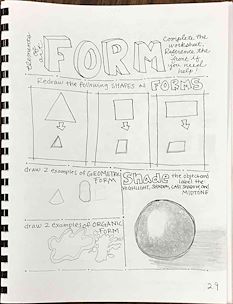 elements of art
FORM
Complete the
worksheet.
Reference the
front if
you need
help!
Redraw the following SHAPES as FORMS
draw 2 examples of GEOMETRIC
FORM
Shade the object and
label the
HIGHLIGHT, SHADOW, CAST SHADOW, and
MIDTONE
draw 2 examples of ORGANIC
FORM
29